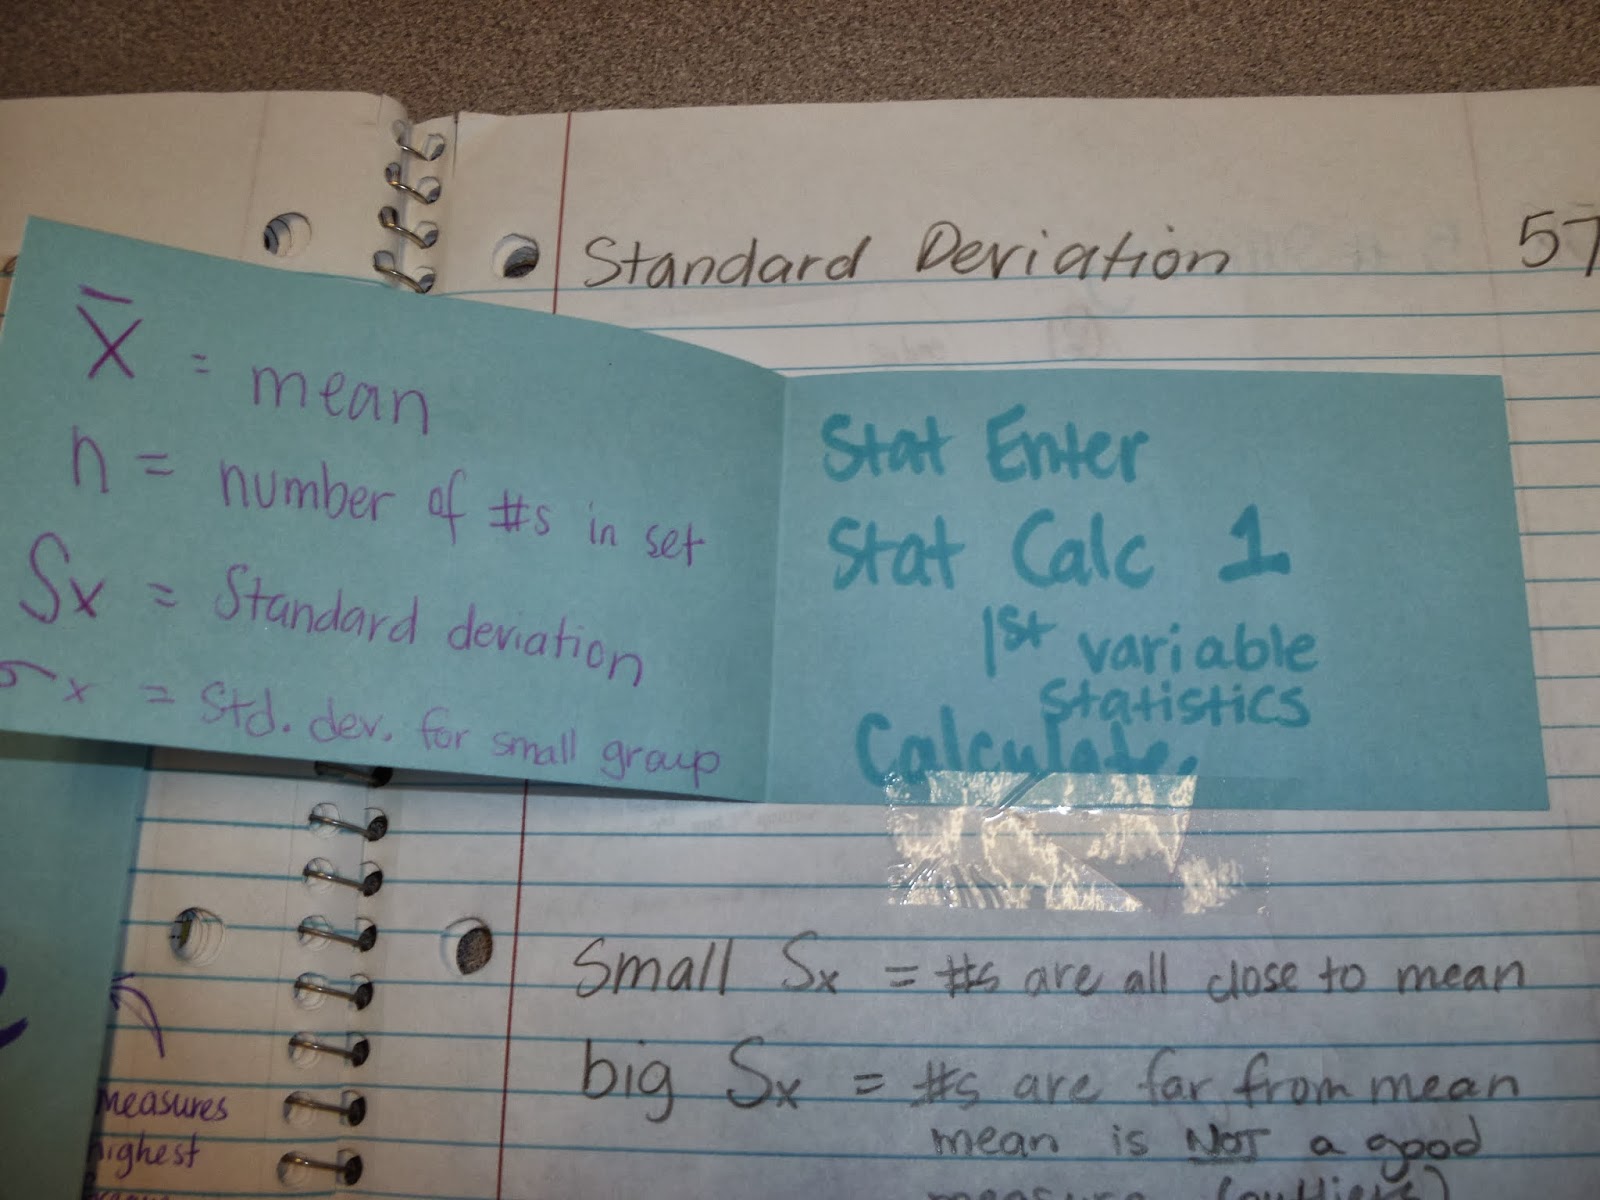 Standard Deviation 57
x̄ = mean
n = number of #s in set
Sx = Standard deviation
σx = Std. dev. for small group
Stat Enter
Stat Calc 1
1st variable
statistics
Calculate.
Small Sx = #s are all close to mean
big Sx = #s are far from mean
mean is NOT a good
measure (outliers)
measures
highest